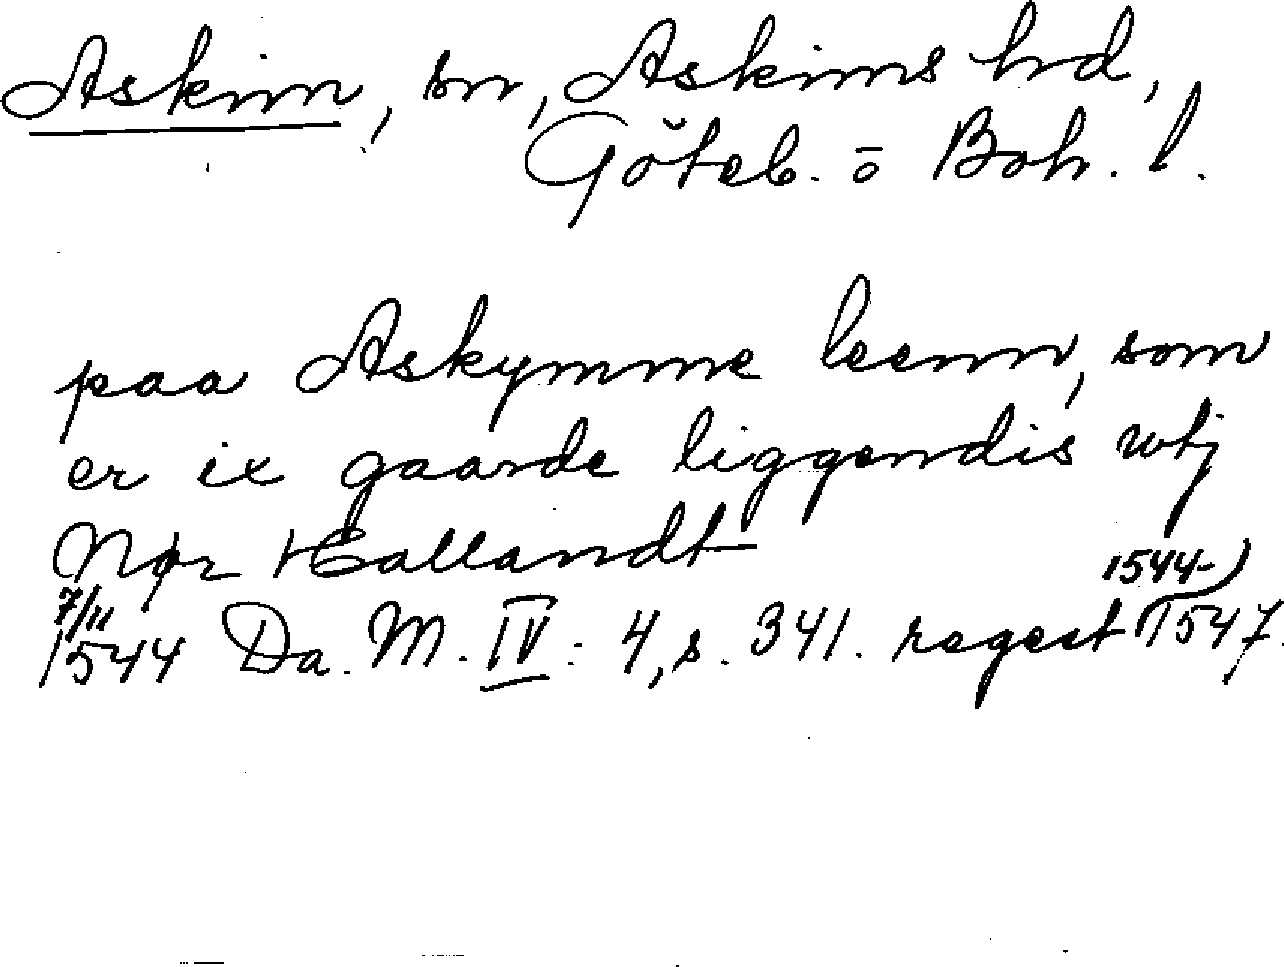 Askim, sn, Askims hrd,
Göteb. o Boh. l.
paa Askymme leenn, som
er ix gaarde liggendis wtj
Nør Hallandt
7/11 1544-
1544 Da. M. IV: 4, s. 341. regest 1547.